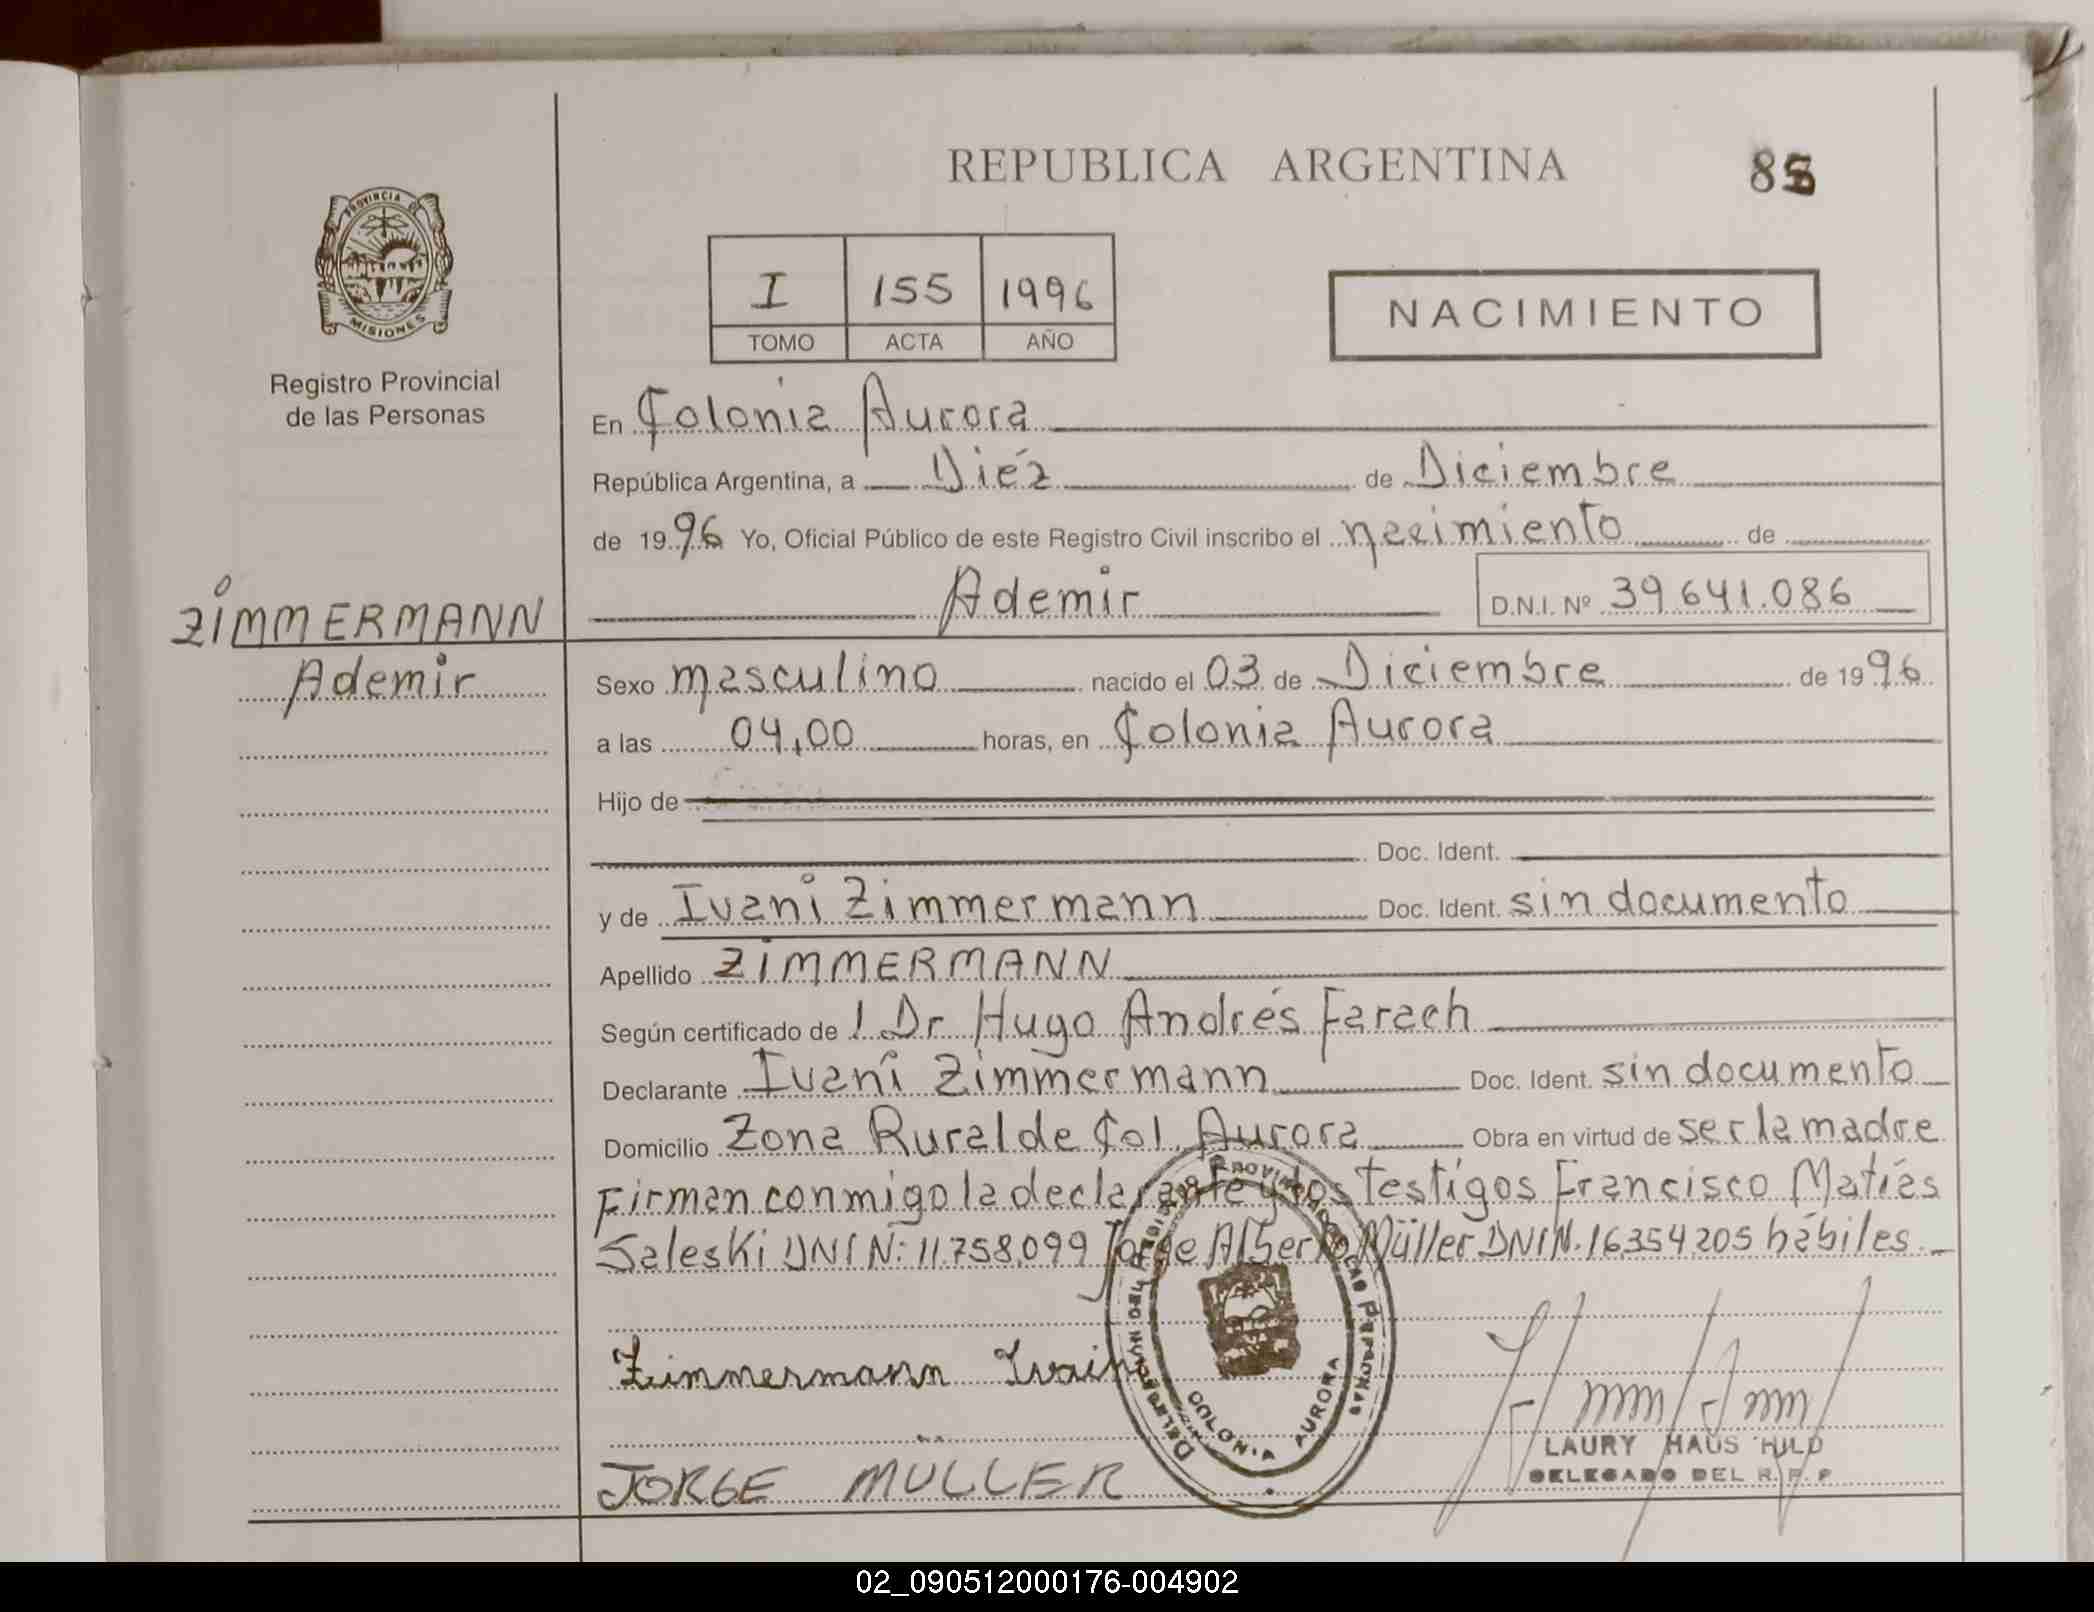 REPUBLICA ARGENTINA
PROVINCIA DE
MISIONES
Registro Provincial
de las Personas
I 155 1996
TOMO ACTA AÑO
NACIMIENTO
En Colonia Aurora
República Argentina, a Diéz de Diciembre
de 1996 Yo, Oficial Público de este Registro Civil inscribo el nacimiento de
Ademir D.N.I. Nº 39.641.086
ZIMMERMANN
Ademir
Sexo masculino nacido el 03 de Diciembre de 1996
a las 04,00 horas, en Colonia Aurora
Hijo de
Doc. Ident.
y de Ivani Zimmermann Doc. Ident. sin documento
Apellido ZIMMERMANN
Según certificado de l Dr Hugo Andrés Farach
Declarante Ivani Zimmermann Doc. Ident. sin documento
Domicilio Zona Rural de Col. Aurora Obra en virtud de ser la madre
Firman conmigo la declarante y los testigos Francisco Matías
Saleski DNI N: 11.758.099 Jorge Alberto Müller DNI N. 16354205 hábiles.
Zimmermann Ivain
COLONIA AURORA
JORGE MÜLLER
LAURY HAUS HILD
DELEGADO DEL R. P. P
02_090512000176-004902